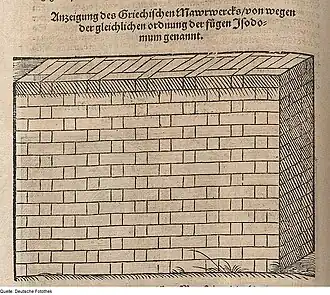 Anzeigung des Griechischen Mawrwercks/von wegen
der gleichlichen ordnung der fügen Isodo-
mum genannt.
Quelle: Deutsche Fotothek